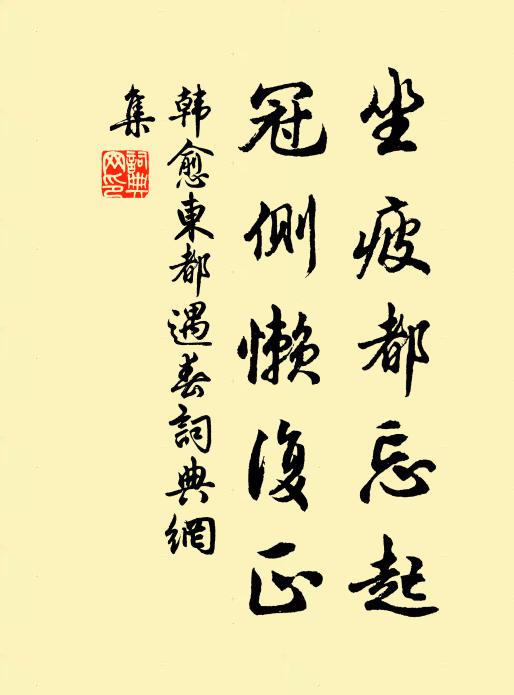 坐疲都忘起
冠側懶復正
韩愈東都遇春詞典網
集
詞典网印